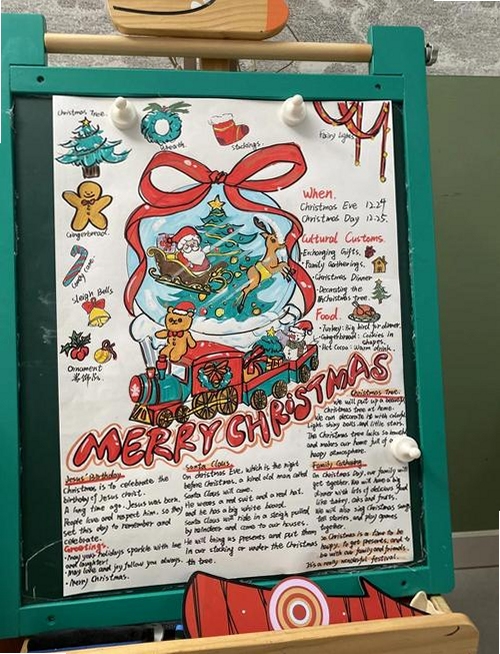 Christmas Tree.
Wreath
Stockings.
Fairy Lights
Gingerbread.
Candy Cane.
Sleigh Bells
Ornament
When.
Christmas Eve 12.24
Christmas Day 12.25.
Cultural Customs.
·Exchanging Gifts.
·Family Gatherings.
·Christmas Dinner
·Decorating the
Christmas tree.
Food.
·Turkey: Big bird for dinner.
·Gingerbread: Cookies in
shapes.
·Hot Cocoa: Warm drink.
MERRY CHRISTMAS
Jesus' Birthday.
Christmas is to celebrate the
birthday of Jesus Christ.
A long time ago. Jesus was born.
People love and respect him. so they
set this day to remember and
celebrate.
Greetings.
·May your holidays sparkle with
and laughter!
·May love and joy follow you always.
·Merry Christmas.
Santa Claus.
On christmas Eve, which is the night
before Christmas, a kind old man called
Santa Claus will come.
He wears a red suit and a red hat.
He has a big white beard.
Santa Claus will ride in a sleigh pulled
by reindeers and come to our houses.
He will bring us presents and put them
in our stocking or under the Christmas
tree.
Christmas Tree.
We will put up a beautiful
Christmas tree at home.
We can decorate it with colorful
light, shiny balls and little stars.
The Christmas tree looks so
and makes our home full of a
happy atmosphere.
Family Gathering.
On Christmas Day, our family will
get together. We will have a big
dinner with lots of delicious food
like turkey, cake and fruits.
We will also sing Christmas songs
tell stories, and play games
together.
So Christmas is a time to be
happy, to get presents, and to
be with our family and friends.
It's a really wonderful festival.